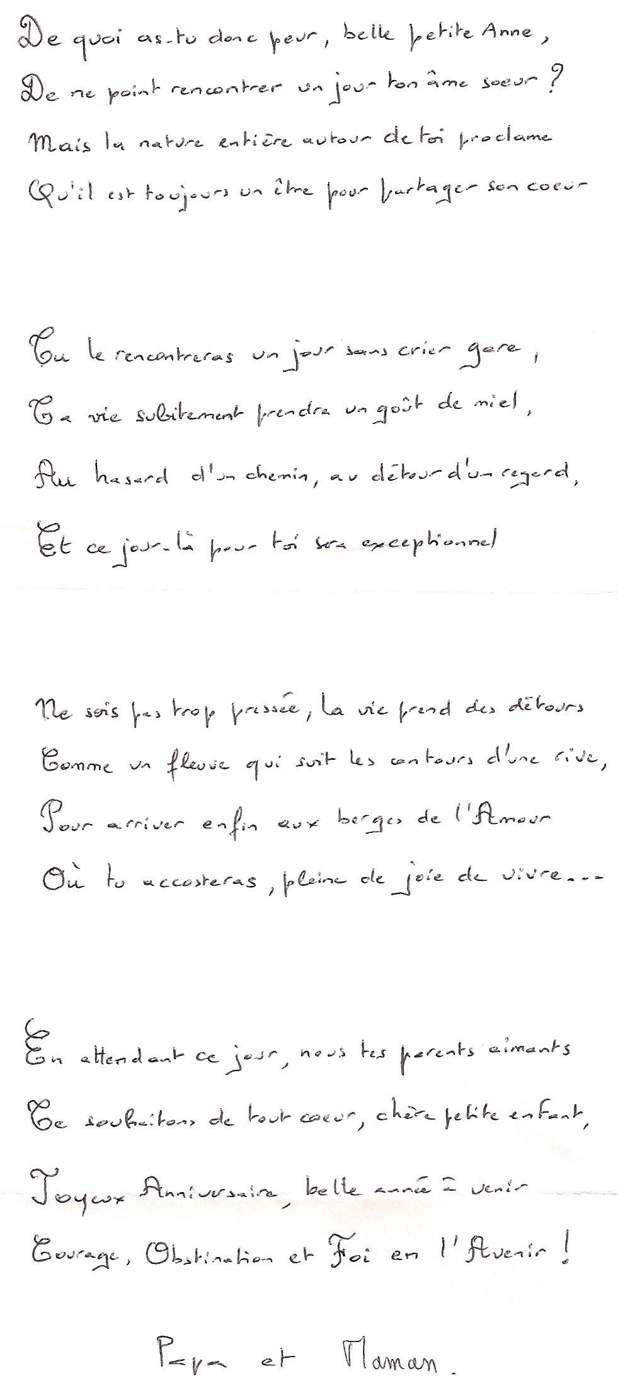 De quoi as-tu donc peur, belle petite Anne,
De ne point rencontrer un jour ton âme soeur ?
Mais la nature entière autour de toi proclame
Qu'il est toujours un être pour partager son coeur
Tu le rencontreras un jour sans crier gare,
Ta vie subitement prendra un goût de miel,
Au hasard d'un chemin, au détour d'un regard,
Et ce jour-là pour toi sera exceptionnel
Ne sois pas trop pressée, la vie prend des détours
Comme un fleuve qui suit les contours d'une rive,
Pour arriver enfin aux berges de l'Amour
Où tu accosteras, pleine de joie de vivre...
En attendant ce jour, nous tes parents aimants
Te souhaitons de tout coeur, chère petite enfant,
Joyeux Anniversaire, belle année à venir
Courage, Obstination et Foi en l'Avenir !
Papa et Maman.